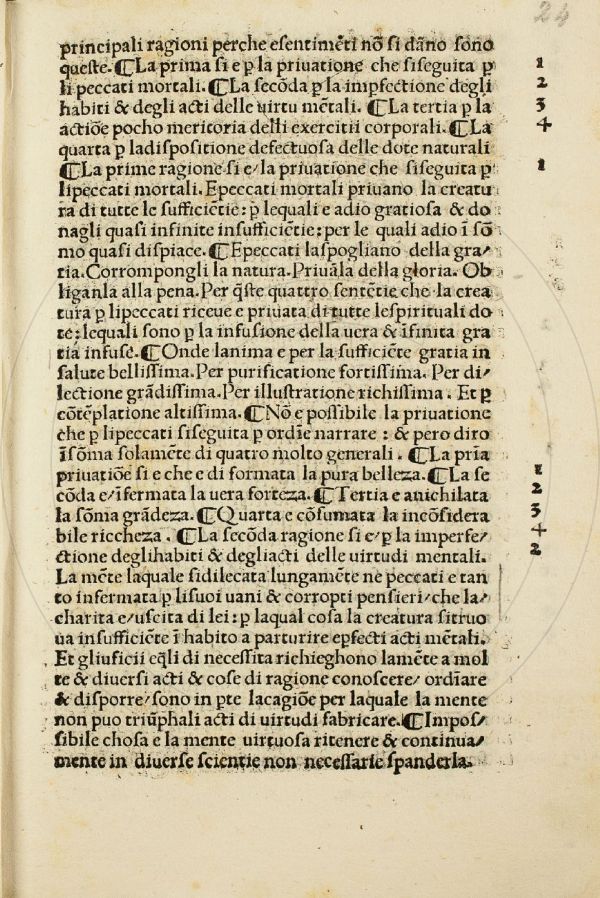 24
principali ragioni perche esentimēti nō si dāno sono
queste. ¶La prima si e ꝑ la priuatione che siseguita ꝑ 1
li peccati mortali. ¶La secōda ꝑ la impfectione degli 2
habiti & degli acti delle uirtu mētali. ¶La tertia ꝑ la 3
actiōe pocho meritoria delli exercitii corporali. ¶La 4
quarta ꝑ ladispositione defectuosa delle dote naturali
¶La prime ragione si e/la priuatione che siseguita ꝑ 1
lipeccati mortali. Epeccati mortali priuano la creatu
ra di tutte le sufficiētie: ꝑ lequali e adio gratiosa & do
nagli quasi infinite insufficiētie: per le quali adio ī sō
mo quasi dispiace. ¶Epeccati laspogliano della gra/
tia. Corrompongli la natura. Priuāla della gloria. Ob
liganla alla pena. Per q̄ste quattro sentētie che la crea
tura ꝑ lipeccati riceue e priuata di tutte lespirituali do
te: lequali sono ꝑ la infusione della uera & īfinita gra
tia infuse. ¶Onde lanima e per la sufficiēte gratia in
salute bellissima. Per purificatione fortissima. Per di/
lectione grādissima. Per illustratione richissima. Et ꝑ
cōtēplatione altissima. ¶Nō e possibile la priuatione
che ꝑ lipeccati siseguita ꝑ ordīe narrare : & pero diro
ī sōma solamēte di quatro molto generali . ¶La pria 1
priuatiōe si e che e di formata la pura belleza. ¶La se 2
cōda e/ifermata la uera forteza. ¶Tertia e anichilata 3
la sōma grādeza. ¶Quarta e cōsumata la incōsidera 4
bile riccheza. ¶La secōda ragione si e/ꝑ la imperfe/ 2
ctione deglihabiti & degliacti delle uirtudi mentali.
La mēte laquale sidilecata lungamēte ne peccati e tan
to infermata ꝑ lisuoi uani & corropti pensieri/che la/
charita e/uscita di lei: ꝑ laqual cosa la creatura sitruo
ua insufficiēte ī habito a parturire epfecti acti mētali.
Et gliuficii eq̄li di necessita richieghono lamēte a mol
te & diuersi acti & cose di ragione conoscere/ ordīare
& disporre/sono in ꝑte lacagiōe per laquale la mente
non puo triūphali acti di uirtudi fabricare. ¶Impos/
sibile chosa e la mente uirtuosa ritenere & continua/
mente in diuerse scientie non necessarie spanderla.